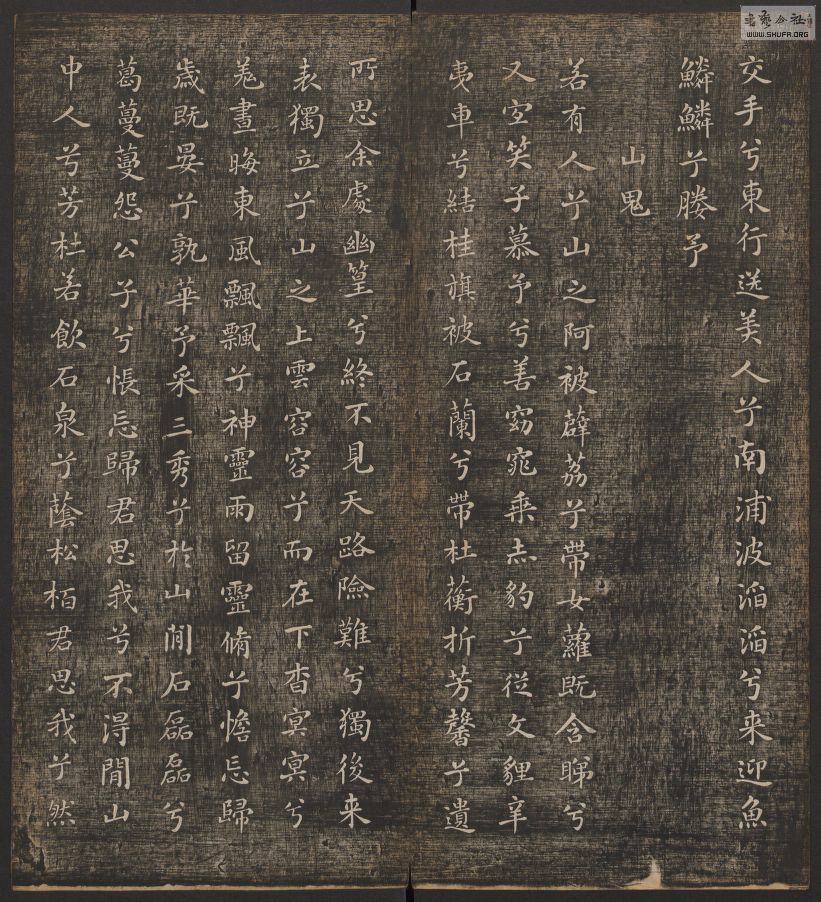 交手兮東行送美人兮南浦波滔滔兮来迎魚
鱗鱗兮媵予
山鬼
若有人兮山之阿被薜荔兮帶女蘿既含睇兮
又宜笑子慕予兮善窈窕乗赤豹兮從文貍辛
夷車兮結桂旗被石蘭兮帶杜蘅折芳馨兮遺
所思余處幽篁兮終不見天路險難兮獨後来
表獨立兮山之上雲容容兮而在下杳冥冥兮
羗晝晦東風飄飄兮神靈雨留靈脩兮憺忘歸
歳既晏兮孰華予采三秀兮於山間石磊磊兮
葛蔓蔓怨公子兮悵忘歸君思我兮不得閒山
中人兮芳杜若飲石泉兮蔭松栢君思我兮然
書藝公社
WWW.SHUFA.ORG